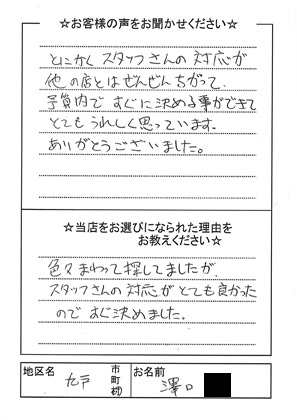 ☆お客様の声をお聞かせください☆
とにかく スタッフさんの 対応が
他の店とは ぜんぜん ちがって、
予算内で すぐに 決める事ができて
とても うれしく 思っています。
ありがとうございました。
☆当店をお選びになられた理由を
お教えください☆
色々 まわって 探してましたが、
スタッフさんの 対応が とても 良かった
ので すぐ 決めました。
地区名 九戸 市町村 お名前 澤口